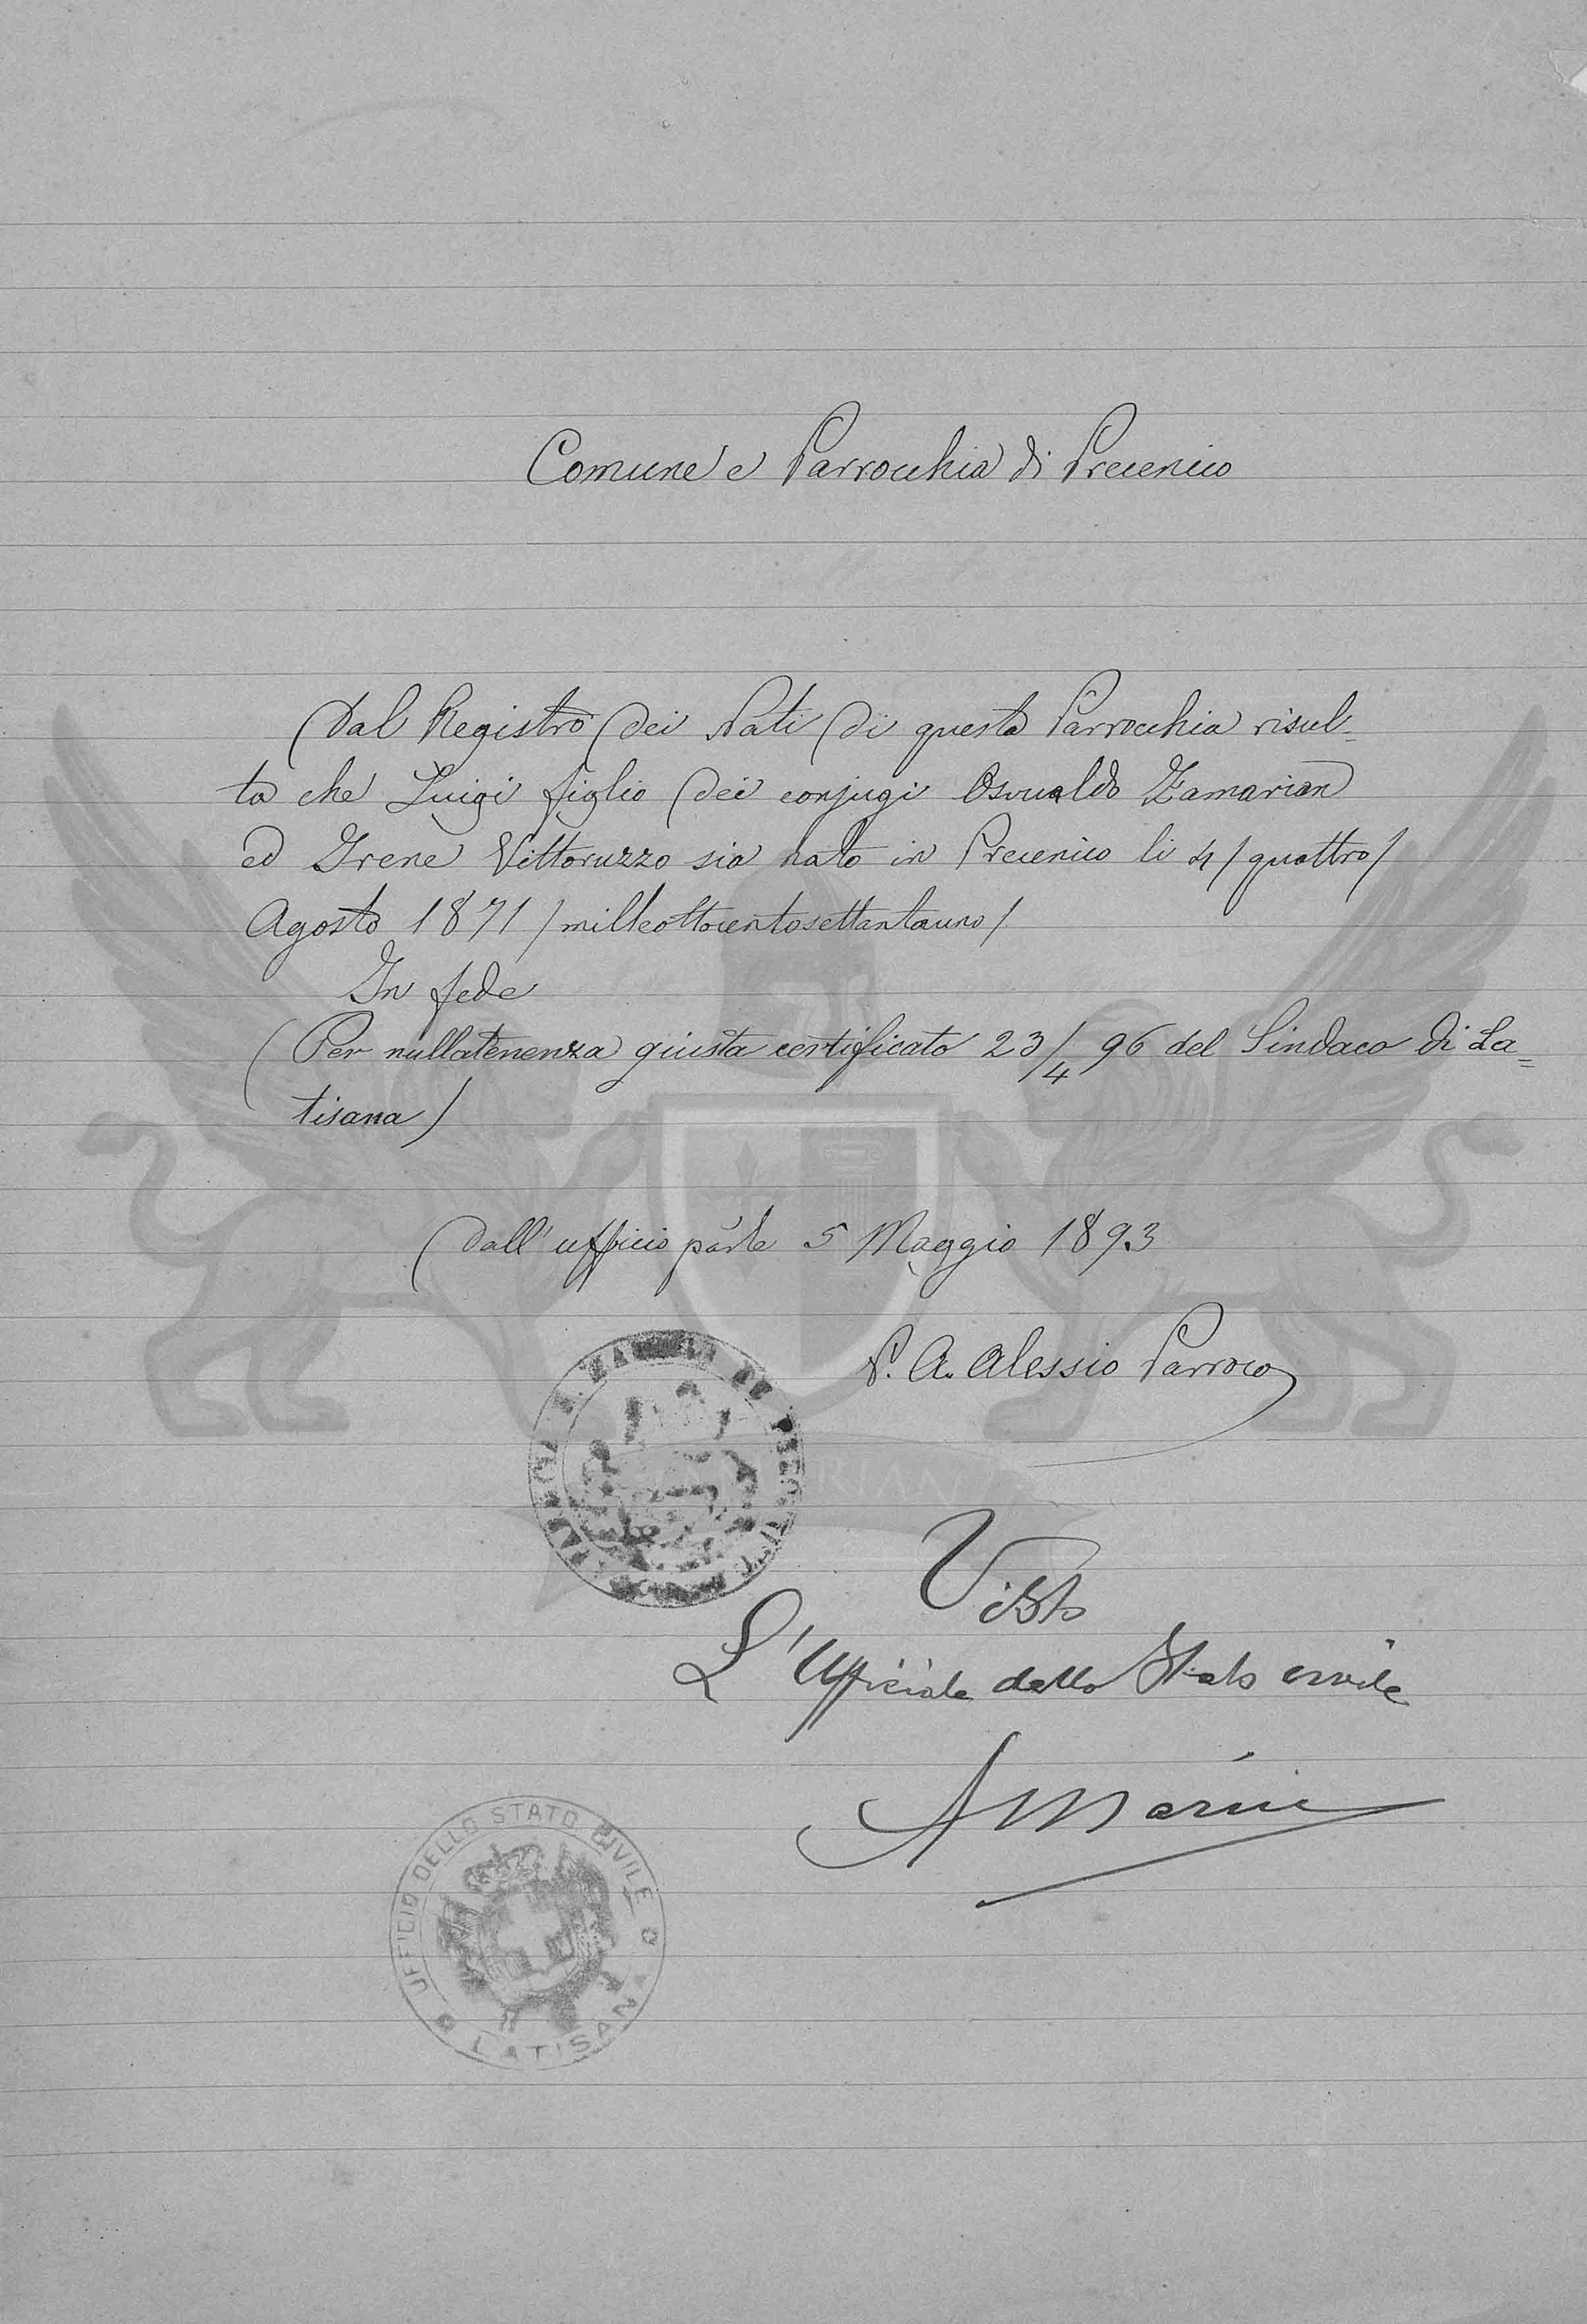 Comune e Parrocchia di Precenico
Dal Registro dei Nati di questa Parrocchia risul-
ta che Luigi figlio dei conjugi Osvualdo Zamarian
ed Irene Vittoruzzo sia nato in Precenico li 4 / quattro /
Agosto 1871 / milleottocentosettantauno /
In fede
(Per nullatenenza giusta certificato 23/4 96 del Sindaco di La=
tisana)
Dall'ufficio parle 5 Maggio 1893
P. A. Alessio Parroco
Visto
L'Ufficiale dello Stato civile
A Marin
UFFICIO DELLO STATO CIVILE
LATISANA